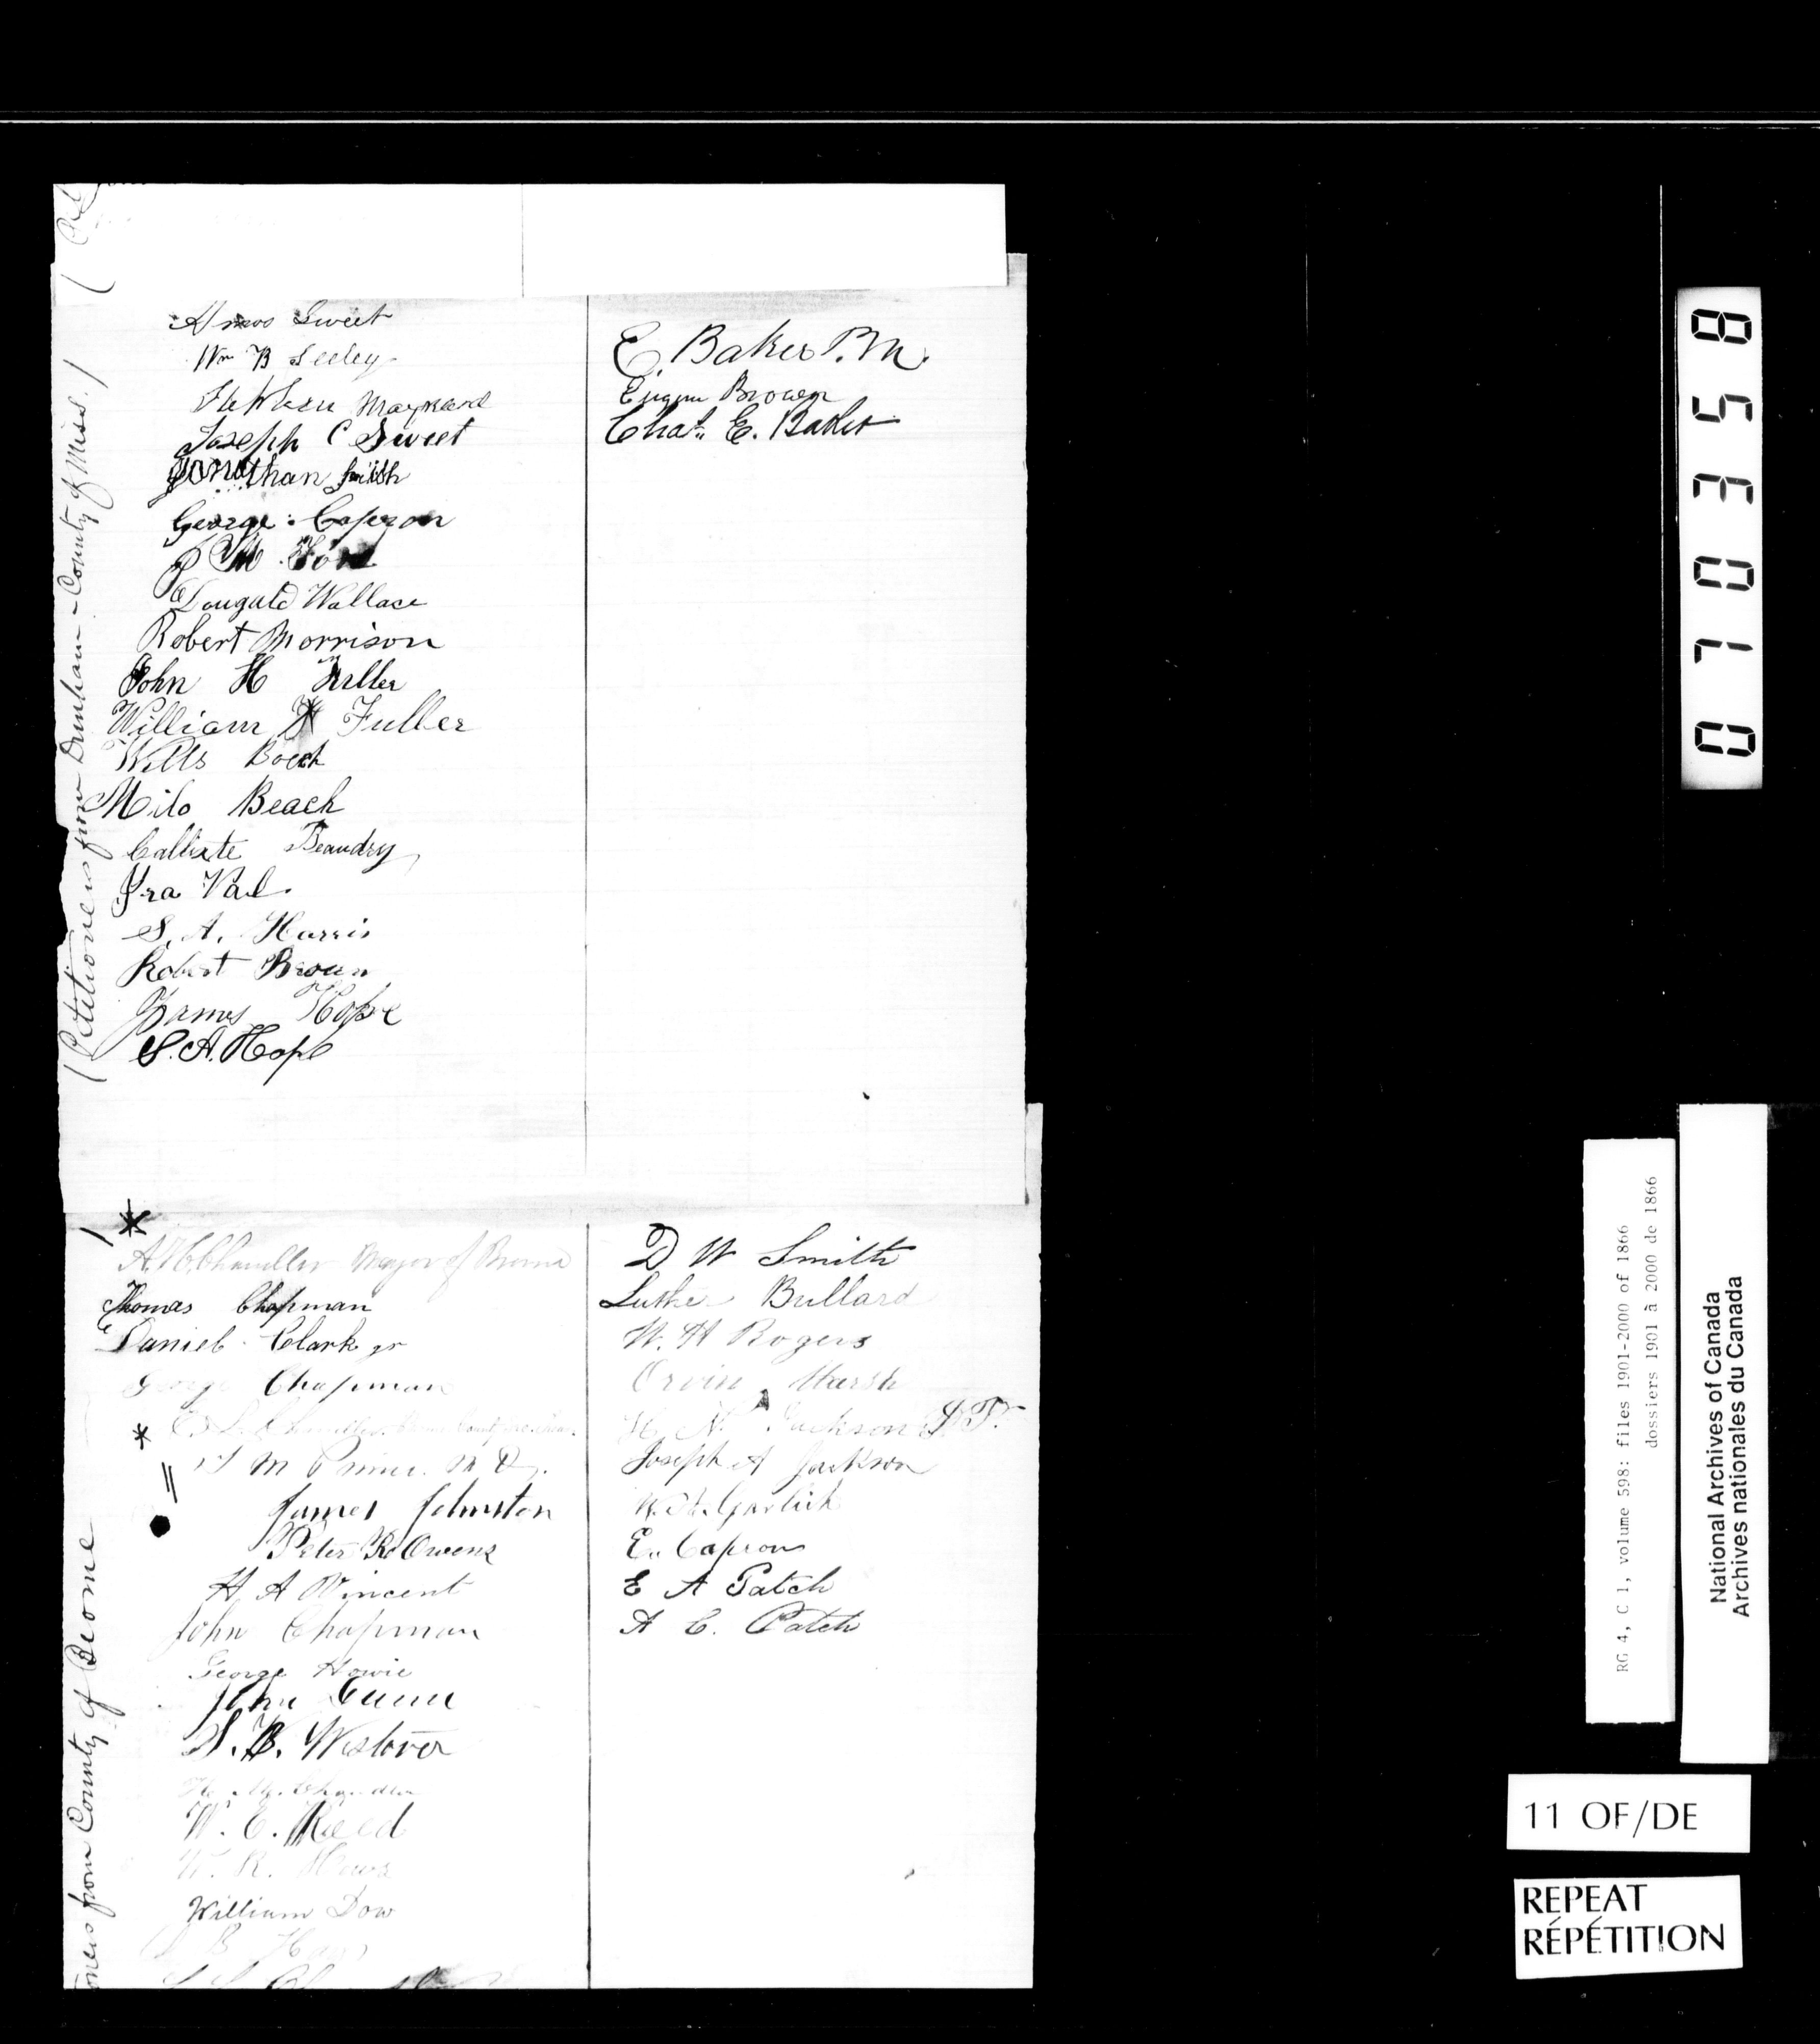 (Petitioners from Dunham - County of Miss.)
Amos Sweet
Wm B Seeley
Stephen Maynard
Joseph C Sweet
Jonathan Smith
George Capron
J M
Dougald Wallace
Robert Morrison
John H Fuller
William H Fuller
Wills Beech
Milo Beach
Callixte Beaudry
Ira Vail
S. A. Harris
Robert Brown
James Hope
S. A. Hope
E. Baker P.M.
Eugene Brown
Chas. E. Baker
from County of Brome
A. H. Chandler Mayor of Brome
Thomas Chapman
Daniel Clark jr
George Chapman
M Prime M D.
James Johnston
Peter R Owens
H A Vincent
John Chapman
George Howie
John Gunn
S. B. Westover
W. E. Reed
W. R.
William Dow
B
D W Smith
Luther Bullard
W. H Rogers
Orvin Marsh
H. N. Jackson
Joseph A Jackson
W. A. Garlick
E. Capron
E A Patch
A C. Patch
0 7 0 3 5 8
RG 4, C 1, volume 598: files 1901-2000 of 1866
dossiers 1901 à 2000 de 1866
National Archives of Canada
Archives nationales du Canada
11 OF/DE
REPEAT
RÉPÉTITION